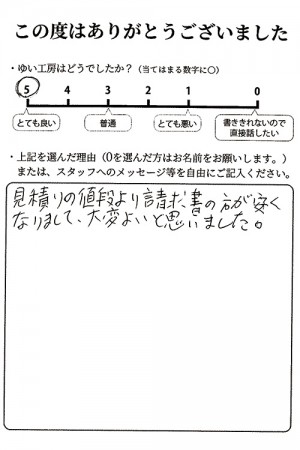 この度はありがとうございました
・ゆい工房はどうでしたか？（当てはまる数字に○）
5 4 3 2 1 0
とても良い 普通 とても悪い 書ききれないので
直接話したい
・上記を選んだ理由（0を選んだ方はお名前をお願いします。）
または、スタッフへのメッセージ等を自由にご記入ください。
見積りの値段より請求書の方が安く
なりまして、大変よいと思いました。